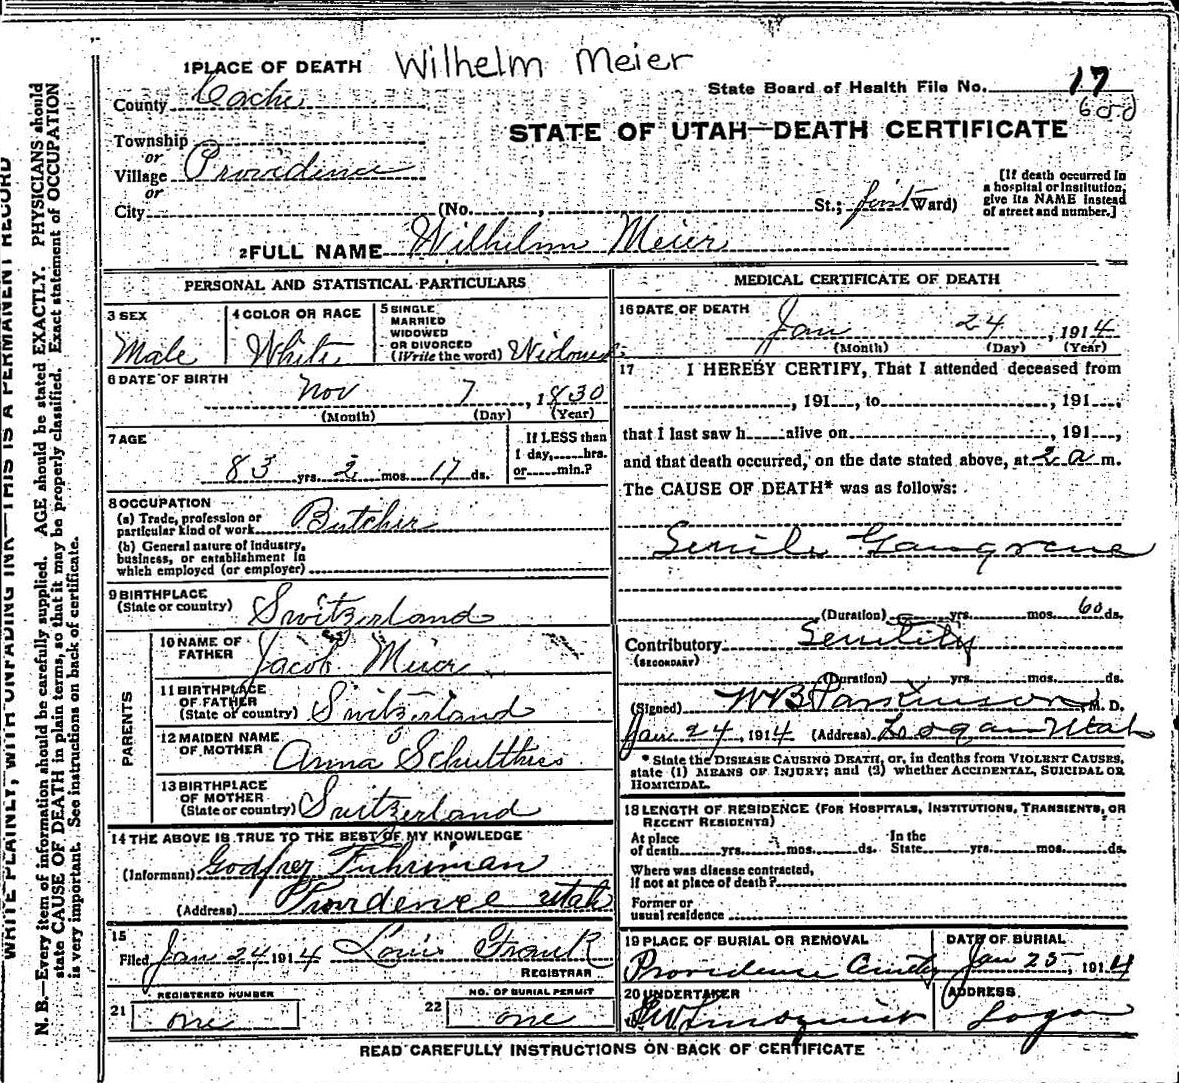 Wilhelm Meier
1 PLACE OF DEATH
State Board of Health File No. 17
600
County Cache
STATE OF UTAH—DEATH CERTIFICATE
Township
or
Village Providence
or
City (No. , St.; first Ward)
[If death occurred in
a hospital or institution,
give its NAME instead
of street and number.]
2 FULL NAME Wilhelm Meier
PERSONAL AND STATISTICAL PARTICULARS
3 SEX
Male
4 COLOR OR RACE
White
5 SINGLE
MARRIED
WIDOWED
OR DIVORCED
(Write the word) Widowed
6 DATE OF BIRTH
Nov 7, 1830
(Month) (Day) (Year)
7 AGE
83 yrs. 2 mos. 17 ds.
If LESS than
1 day, hrs.
or min.?
8 OCCUPATION
(a) Trade, profession or
particular kind of work Butcher
(b) General nature of industry,
business, or establishment in
which employed (or employer)
9 BIRTHPLACE
(State or country) Switzerland
PARENTS
10 NAME OF
FATHER Jacob Meier
11 BIRTHPLACE
OF FATHER
(State or country) Switzerland
12 MAIDEN NAME
OF MOTHER Anna Schulthes
13 BIRTHPLACE
OF MOTHER
(State or country) Switzerland
14 THE ABOVE IS TRUE TO THE BEST OF MY KNOWLEDGE
(Informant) Godfrey Fuhriman
(Address) Providence Utah
15
Filed Jan 24 1914 Louis Frank
REGISTRAR
REGISTERED NUMBER
21 one
NO. OF BURIAL PERMIT
22 one
MEDICAL CERTIFICATE OF DEATH
16 DATE OF DEATH
Jan 24, 1914
(Month) (Day) (Year)
17 I HEREBY CERTIFY, That I attended deceased from
, 191 , to , 191 ,
that I last saw h alive on , 191 ,
and that death occurred, on the date stated above, at 2 a m.
The CAUSE OF DEATH* was as follows:
Senile Gangrene
(Duration) yrs. mos. 60 ds.
Contributory Senility
(SECONDARY)
(Duration) yrs. mos. ds.
(Signed) WB Parkinson M. D.
Jan 24, 1914 (Address) Logan Utah
* State the DISEASE CAUSING DEATH, or, in deaths from VIOLENT CAUSES,
state (1) MEANS OF INJURY; and (2) whether ACCIDENTAL, SUICIDAL OR
HOMICIDAL.
18 LENGTH OF RESIDENCE (FOR HOSPITALS, INSTITUTIONS, TRANSIENTS, OR
RECENT RESIDENTS)
At place
of death yrs. mos. ds.
In the
State yrs. mos. ds.
Where was disease contracted,
if not at place of death?
Former or
usual residence
19 PLACE OF BURIAL OR REMOVAL
Providence Cemetery
DATE OF BURIAL
Jan 25, 1914
20 UNDERTAKER
Lindquist
ADDRESS
Logan
READ CAREFULLY INSTRUCTIONS ON BACK OF CERTIFICATE
WRITE PLAINLY, WITH UNFADING INK—THIS IS A PERMANENT RECORD
N. B.—Every item of information should be carefully supplied. AGE should be stated EXACTLY. PHYSICIANS should
state CAUSE OF DEATH in plain terms, so that it may be properly classified. Exact statement of OCCUPATION
is very important. See instructions on back of certificate.